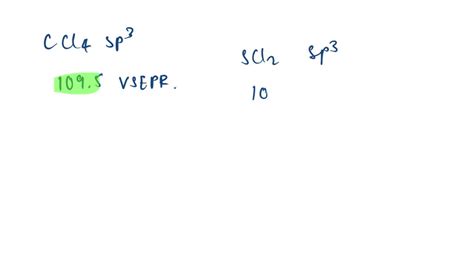 CCl4 sp³
109.5 VSEPR.
SCl2 sp³
10